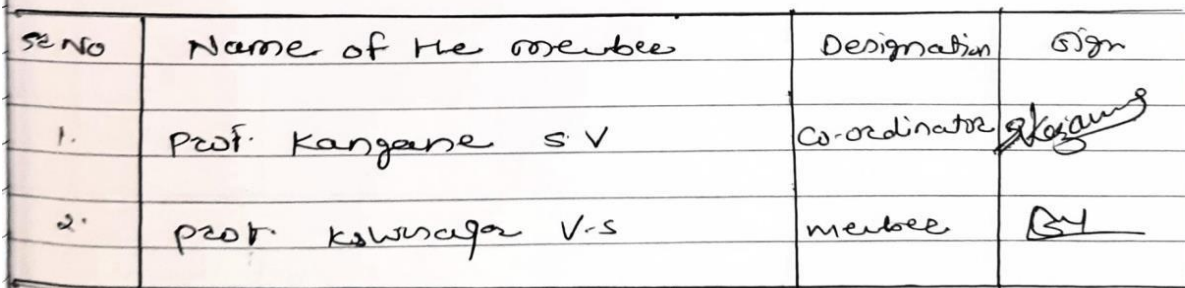 Sr No Name of the member Designation Sign
1. Prof. Kangane S.V Co-ordinator
2. Prof. V.S member